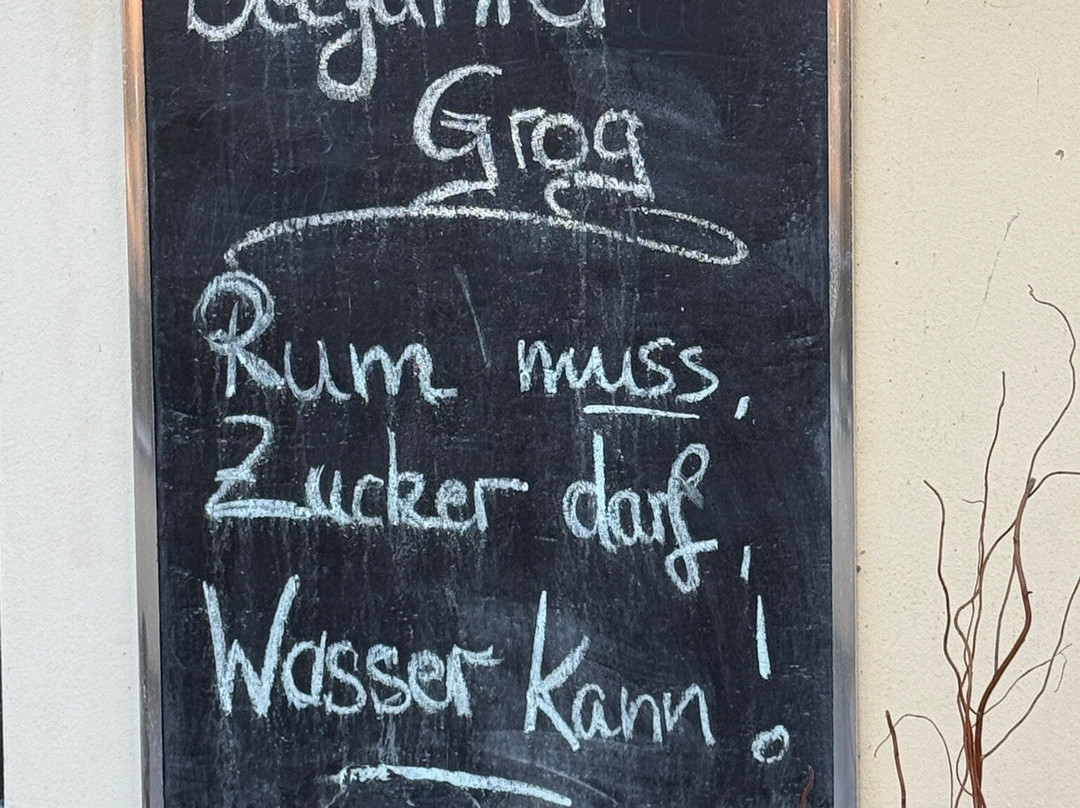 Grog
Rum muss,
Zucker darf,
Wasser kann!